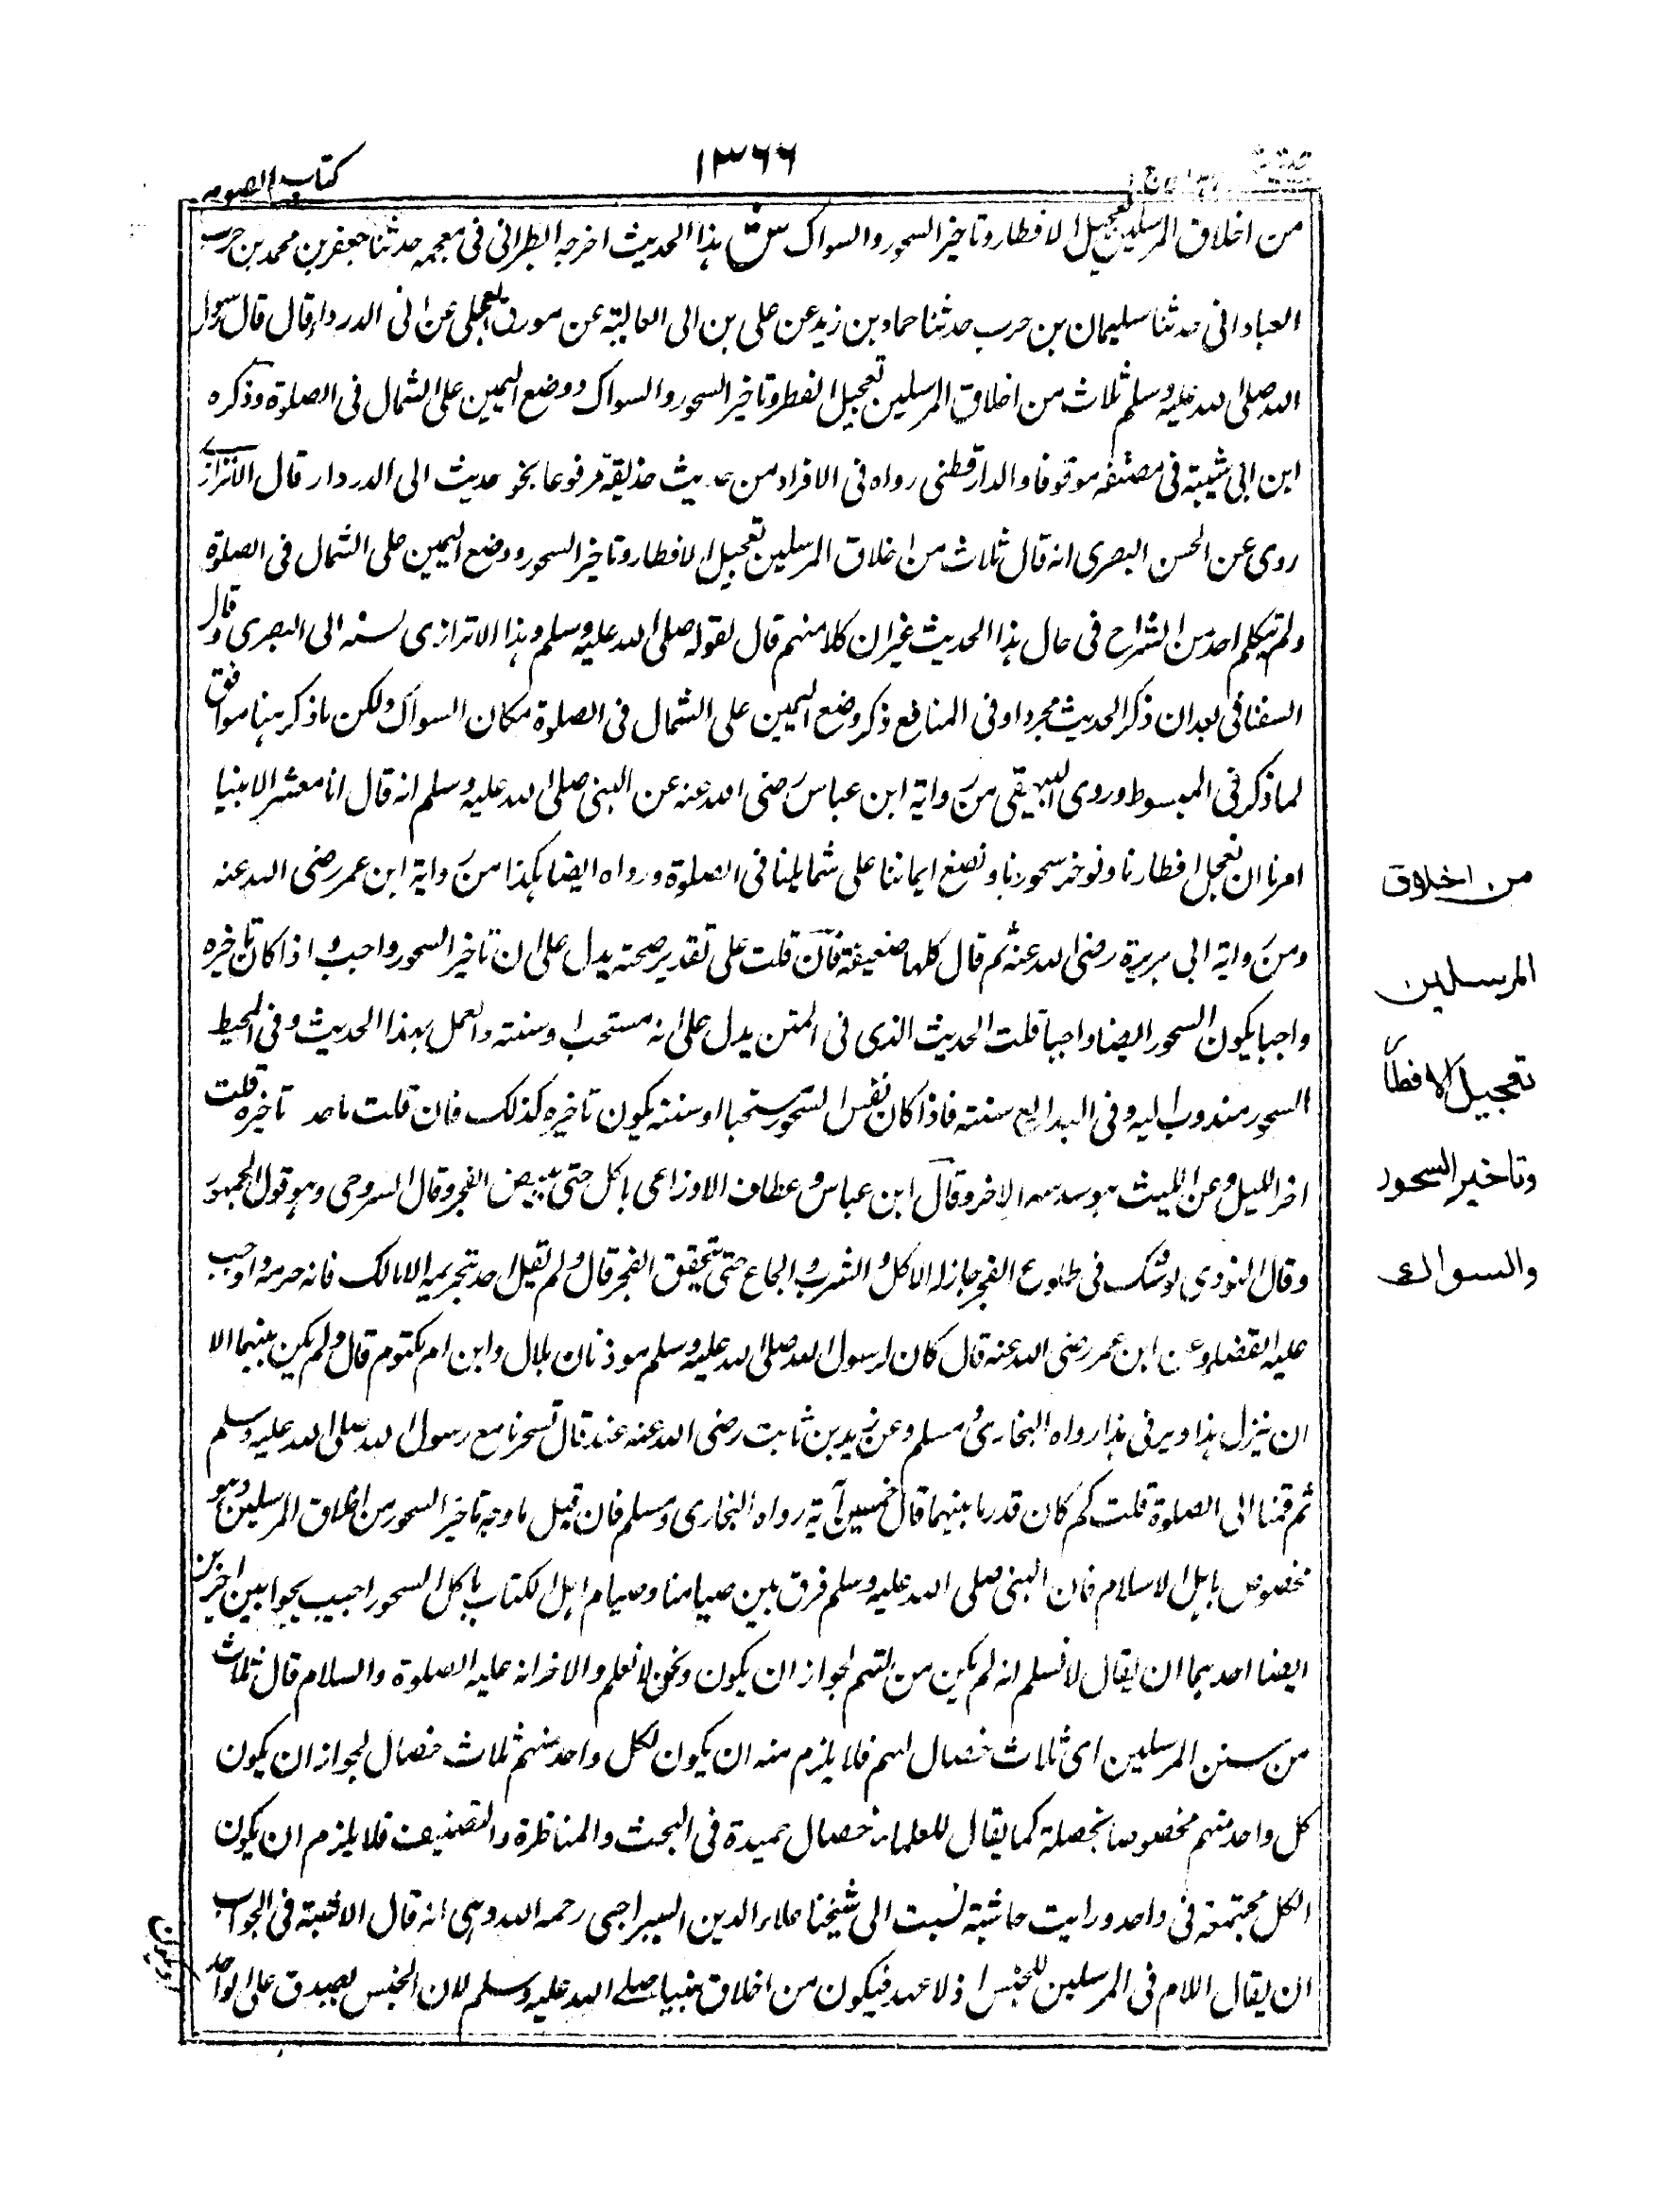 كتاب الصوم
١٣٦٦
من اخلاق المرسلين تعجيل الافطار وتاخير السحور والسواك ش هذا الحديث اخرجه الطبراني في معجمه حدثنا جعفر بن محمد بن حرب
العباداني حدثنا سليمان بن حرب حدثنا حماد بن زيد عن علي بن ابي العالية عن مورق العجلي عن ابي الدرداء قال قال رسول
الله صلى الله عليه وسلم ثلاث من اخلاق المرسلين تعجيل الفطر وتاخير السحور والسواك ووضع اليمين على الشمال في الصلوة وذكره
ابن ابي شيبة في مصنفه موقوفا والدارقطني رواه في الافراد من حديث حذيفة مرفوعا بنحو حديث ابي الدرداء قال الاترازي
روى عن الحسن البصري انه قال ثلاث من اخلاق المرسلين تعجيل الافطار وتاخير السحور ووضع اليمين على الشمال في الصلوة
ولم يتكلم احد من الشراح في حال هذا الحديث غير ان كلا منهم قال لقوله صلى الله عليه وسلم وهذا الاترازي نسبه الى البصري وقال
السغناقي بعد ان ذكر الحديث مجردا وفي المنافع ذكر وضع اليمين على الشمال في الصلوة مكان السواك ولكن ما ذكر هنا موافق
لما ذكر في المبسوط وروى البيهقي من رواية ابن عباس رضى الله عنه عن النبي صلى الله عليه وسلم انه قال انا معشر الانبيا
امرنا ان نعجل افطارنا ونوخر سحورنا ونضع ايماننا على شمايلنا في الصلوة ورواه ايضا هكذا من رواية ابن عمر رضى الله عنه
ومن رواية ابي هريرة رضى الله عنه ثم قال كلها ضعيفة فان قلت على تقدير صحته يدل على ان تاخير السحور واجب واذا كان تاخيره
واجبا يكون السحور ايضا واجبا قلت الحديث الذي في المتن يدل على انه مستحب او سنة والعمل بهذا الحديث وفي المحيط
السحور مندوب اليه وفي البدايع سنة فاذا كان نفس السحور مستحبا او سنة يكون تاخيره كذلك فان قلت ما حد تاخيره قلت
اخر الليل وعن الليث هو سدسه الاخر وقال ابن عباس وعطاء الاوزاعي ياكل حتى يبيض الفجر وقال السروجي وهو قول الجمهور
وقال النووي لو شك في طلوع الفجر جاز له الاكل والشرب والجماع حتى يتحقق الفجر قال ولم يقل احد بتحريمه الا مالك فانه حرمه واوجب
عليه القضاء وعن ابن عمر رضى الله عنه قال كان لرسول الله صلى الله عليه وسلم موذنان بلال وابن ام مكتوم قال ولم يكن بينهما الا
ان ينزل هذا ويرقى هذا رواه البخاري ومسلم وعن زيد بن ثابت رضى الله عنه عنه قال تسحرنا مع رسول الله صلى الله عليه وسلم
ثم قمنا الى الصلوة قلت كم كان قدر ما بينهما قال خمسين آية رواه البخاري ومسلم فان قيل ما وجه تاخير السحور من اخلاق المرسلين وهو
مخصوص باهل الاسلام فان النبي صلى الله عليه وسلم فرق بين صيامنا وصيام اهل الكتاب باكل السحور اجيب بجوابين اخرين
ايضا احدهما ان يقال لا نسلم انه لم يكن من سنتهم لجواز ان يكون ونحن لا نعلم والاخر انه عليه الصلوة والسلام قال ثلاث
من سنن المرسلين اى ثلاث خصال لهم فلا يلزم منه ان يكون لكل واحد منهم ثلاث خصال لجواز ان يكون
كل واحد منهم مخصوصا بخصلة كما يقال للعلماء خصال حميدة في البحث والمناظرة والتصنيف فلا يلزم ان يكون
الكل مجتمعة في واحد ورايت حاشية نسبت الى شيخنا علاء الدين السيرامي رحمه الله وهى انه قال الاشبه في الجواب
ان يقال اللام في المرسلين للجنس اذ لا عهد فيكون من اخلاق نبينا صلى الله عليه وسلم لان الجنس يصدق على الواحد
من اخلاق
المرسلين
تعجيل الافطار
وتاخير السحور
والسواك